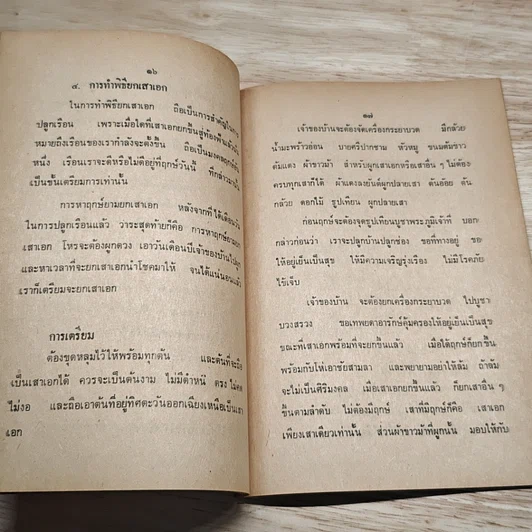 ๑๖
๔. การทำพิธียกเสาเอก
ในการทำพิธียกเสาเอก ถือเป็นการสำคัญในการ
ปลูกเรือน เพราะเมื่อใดที่เสาเอกยกขึ้นสู่ท้องฟ้าแล้วนั้น
หมายถึงเรือนของเรากำลังจะตั้งขึ้น ถือเป็นมงคลฤกษ์
หนึ่ง เรือนเราจะดีหรือไม่ดีอยู่ที่ฤกษ์วันนี้ ที่กล่าวมานั้น
เป็นขั้นเตรียมการเท่านั้น
การหาฤกษ์ยามยกเสาเอก หลังจากที่ได้เดือนวัน
ในการปลูกเรือนแล้ว วาระสุดท้ายก็คือ การหาฤกษ์ยาม
เสาเอก โหรจะต้องผูกดวง เอาวันเดือนปีเจ้าของบ้านไปผูก
และหาเวลาที่จะยกเสาเอกนำโชคมาให้ จนได้แน่นอนแล้ว
เราก็เตรียมจะยกเสาเอก
การเตรียม
ต้องขุดหลุมไว้ให้พร้อมทุกต้น และต้นที่จะถือ
เป็นเสาเอกได้ ควรจะเป็นต้นงาม ไม่มีตำหนิ ตรง ไม่คด
ไม่งอ และถือเอาต้นที่อยู่ทิศตะวันออกเฉียงเหนือเป็นเสา
เอก
๑๗
เจ้าของบ้านจะต้องจัดเครื่องกระยาบวด มีกล้วย
น้ำมะพร้าวอ่อน บายศรีปากชาม หัวหมู ขนมต้มขาว
ต้มแดง ผ้าขาวม้า สำหรับผูกเสาเอกหรือเสาอื่น ๆ ไม่ต้อง
ครบทุกเสาก็ได้ ผ้าแดงลงยันต์ผูกปลายเสา ต้นอ้อย ต้น
กล้วย ดอกไม้ ธูปเทียน ผูกปลายเสา
ก่อนฤกษ์จะต้องจุดธูปเทียนบูชาพระภูมิเจ้าที่ บอก
กล่าวก่อนว่า เราจะปลูกบ้านปลูกช่อง ขอที่ทางอยู่ ขอ
ให้อยู่เย็นเป็นสุข ให้มีความเจริญรุ่งเรือง ไม่มีโรคภัย
ไข้เจ็บ
เจ้าของบ้าน จะต้องยกเครื่องกระยาบวด ไปบูชา
บวงสรวง ขอเทพยดาอารักษ์คุ้มครองให้อยู่เย็นเป็นสุข
ขณะที่เสาเอกพร้อมที่จะยกขึ้นแล้ว เมื่อได้ฤกษ์ก็ยกขึ้น
พร้อมกับโห่เอาชัยสามลา และพยายามอย่าให้ล้ม ถ้าล้ม
จะไม่เป็นศิริมงคล เมื่อเสาเอกยกขึ้นแล้ว ก็ยกเสาอื่น ๆ
ขึ้นตามลำดับ ไม่ต้องมีฤกษ์ เสาที่มีฤกษ์ก็คือ เสาเอก
เพียงเสาเดียวเท่านั้น ส่วนผ้าขาวม้าที่ผูกนั้น มอบให้กับ